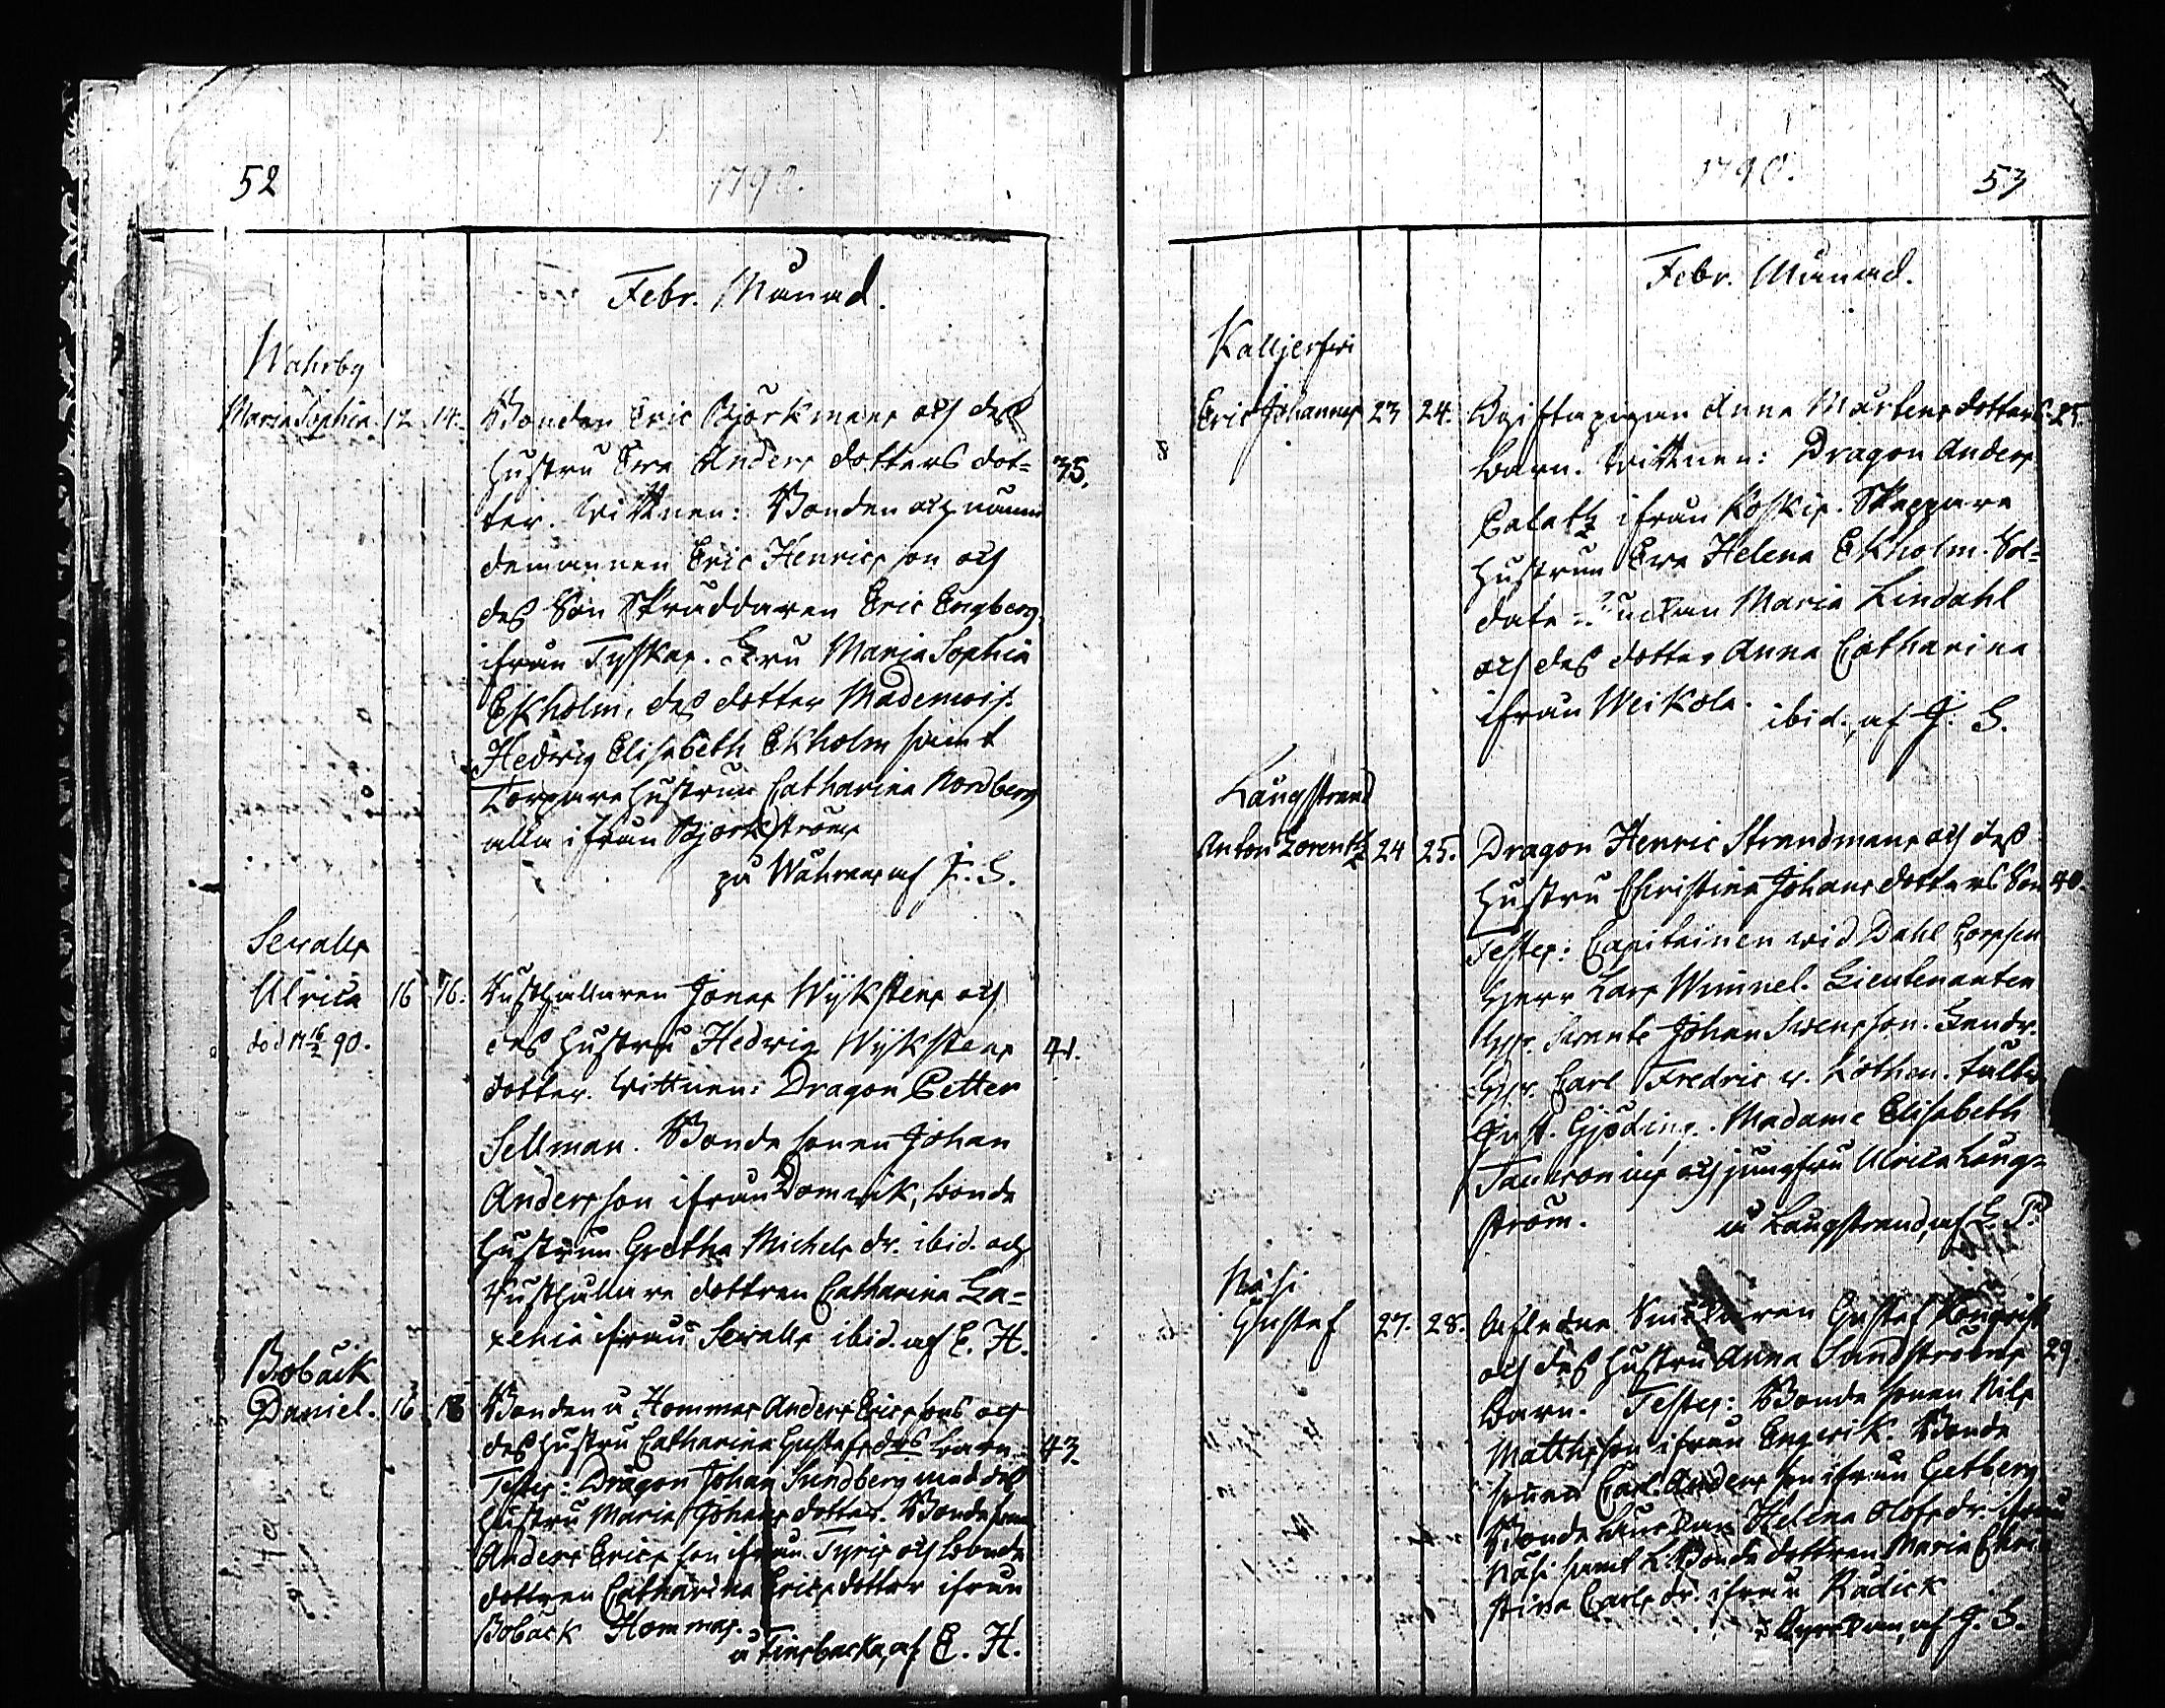 52
1790.
Febr. Månad.
Wahrby
Maria Sophia. 12. 14. Bonden Eric Björkmans och dess
hustru Ewa Anders dotters dot-
35.
ter. Wittnen: Bonden och
demannen Eric Henricsson och
dess Son Skräddaren Eric Engberg
ifrån Tyskas. Fru Maria Sophia
Ekholm, dess dotter Mademois.
Hedwig Elisabeth Ekholm samt
Torpare hustrun Catharina Nordberg
alla ifrån Björkströms
på Wåhrnäs af J. S.
Sewalls
Ulrica 16 16. Rusthållaren Jonas Wÿkstens och
död 16/2 90. dess hustru Hedwig Wÿkstens 41.
dotter. Wittnen: Dragon Petter
Sellman. Bonde sonen Johan
Andersson ifrån Domwik, bonde
hustrun Gretha Michels dr. ibid. och
Rusthållare dottren Catharina La-
renia ifrån Sewalls ibid. af E. H.
Bobäck
Daniel. 16 18 Bonden å Hommas Anders Ericssons och
dess hustru Catharina Gustafsdrs barn. 43.
Testes: Dragon Johan Sundberg med dess
hustru Maria Johans dotter. Bonde sonen
Anders Ericsson ifrån Tyris och bonde
dottren Catharina Erics dotter ifrån
Bobäck Hommas.
å Finsbacka, af E. H.
1790.
53
Febr. Månad.
Kalljerfwi
Eric Johannes 23 24. Ogifta pigan Anna Mårtens dotters 25.
8
barn. Wittnen: Dragon Anders
Calatz ifrån Koskis. Skeppare
hustrun Ewa Helena Ekholm. Sol-
date Enckan Maria Lindahl
och dess dotter Anna Catharina
ifrån Weikola. ibid., af J. S.
Långstrand
Anton Lorentz 24 25. Dragon Henric Strandmans och dess
hustru Christina Johans dotters Son 40.
Testes: Capitainen wid Dahl Corpsen
Herr Lars Wimnel. Lieutenanten
Johan Swensson. Fendr.
Carl Fredric v. Köthen.
Gjöding. Madame Elisabeth
och jungfru Ulrica Lång-
ström. å Långstrand, af L. P.
Näsi
Gustaf 27. 28. Afledne Gustaf
och dess hustru Anna Sundströms 29
barn. Testes: Bonde sonen Nils
Matthsson ifrån Engwik. Bonde
sonen Carl Andersson ifrån Getberg
Bonde Enckan Helena Olofs dr. ifrån
Näsi samt Bonde dottren Maria Chri-
stina Carls dr. ifrån Rådick
af J. S.